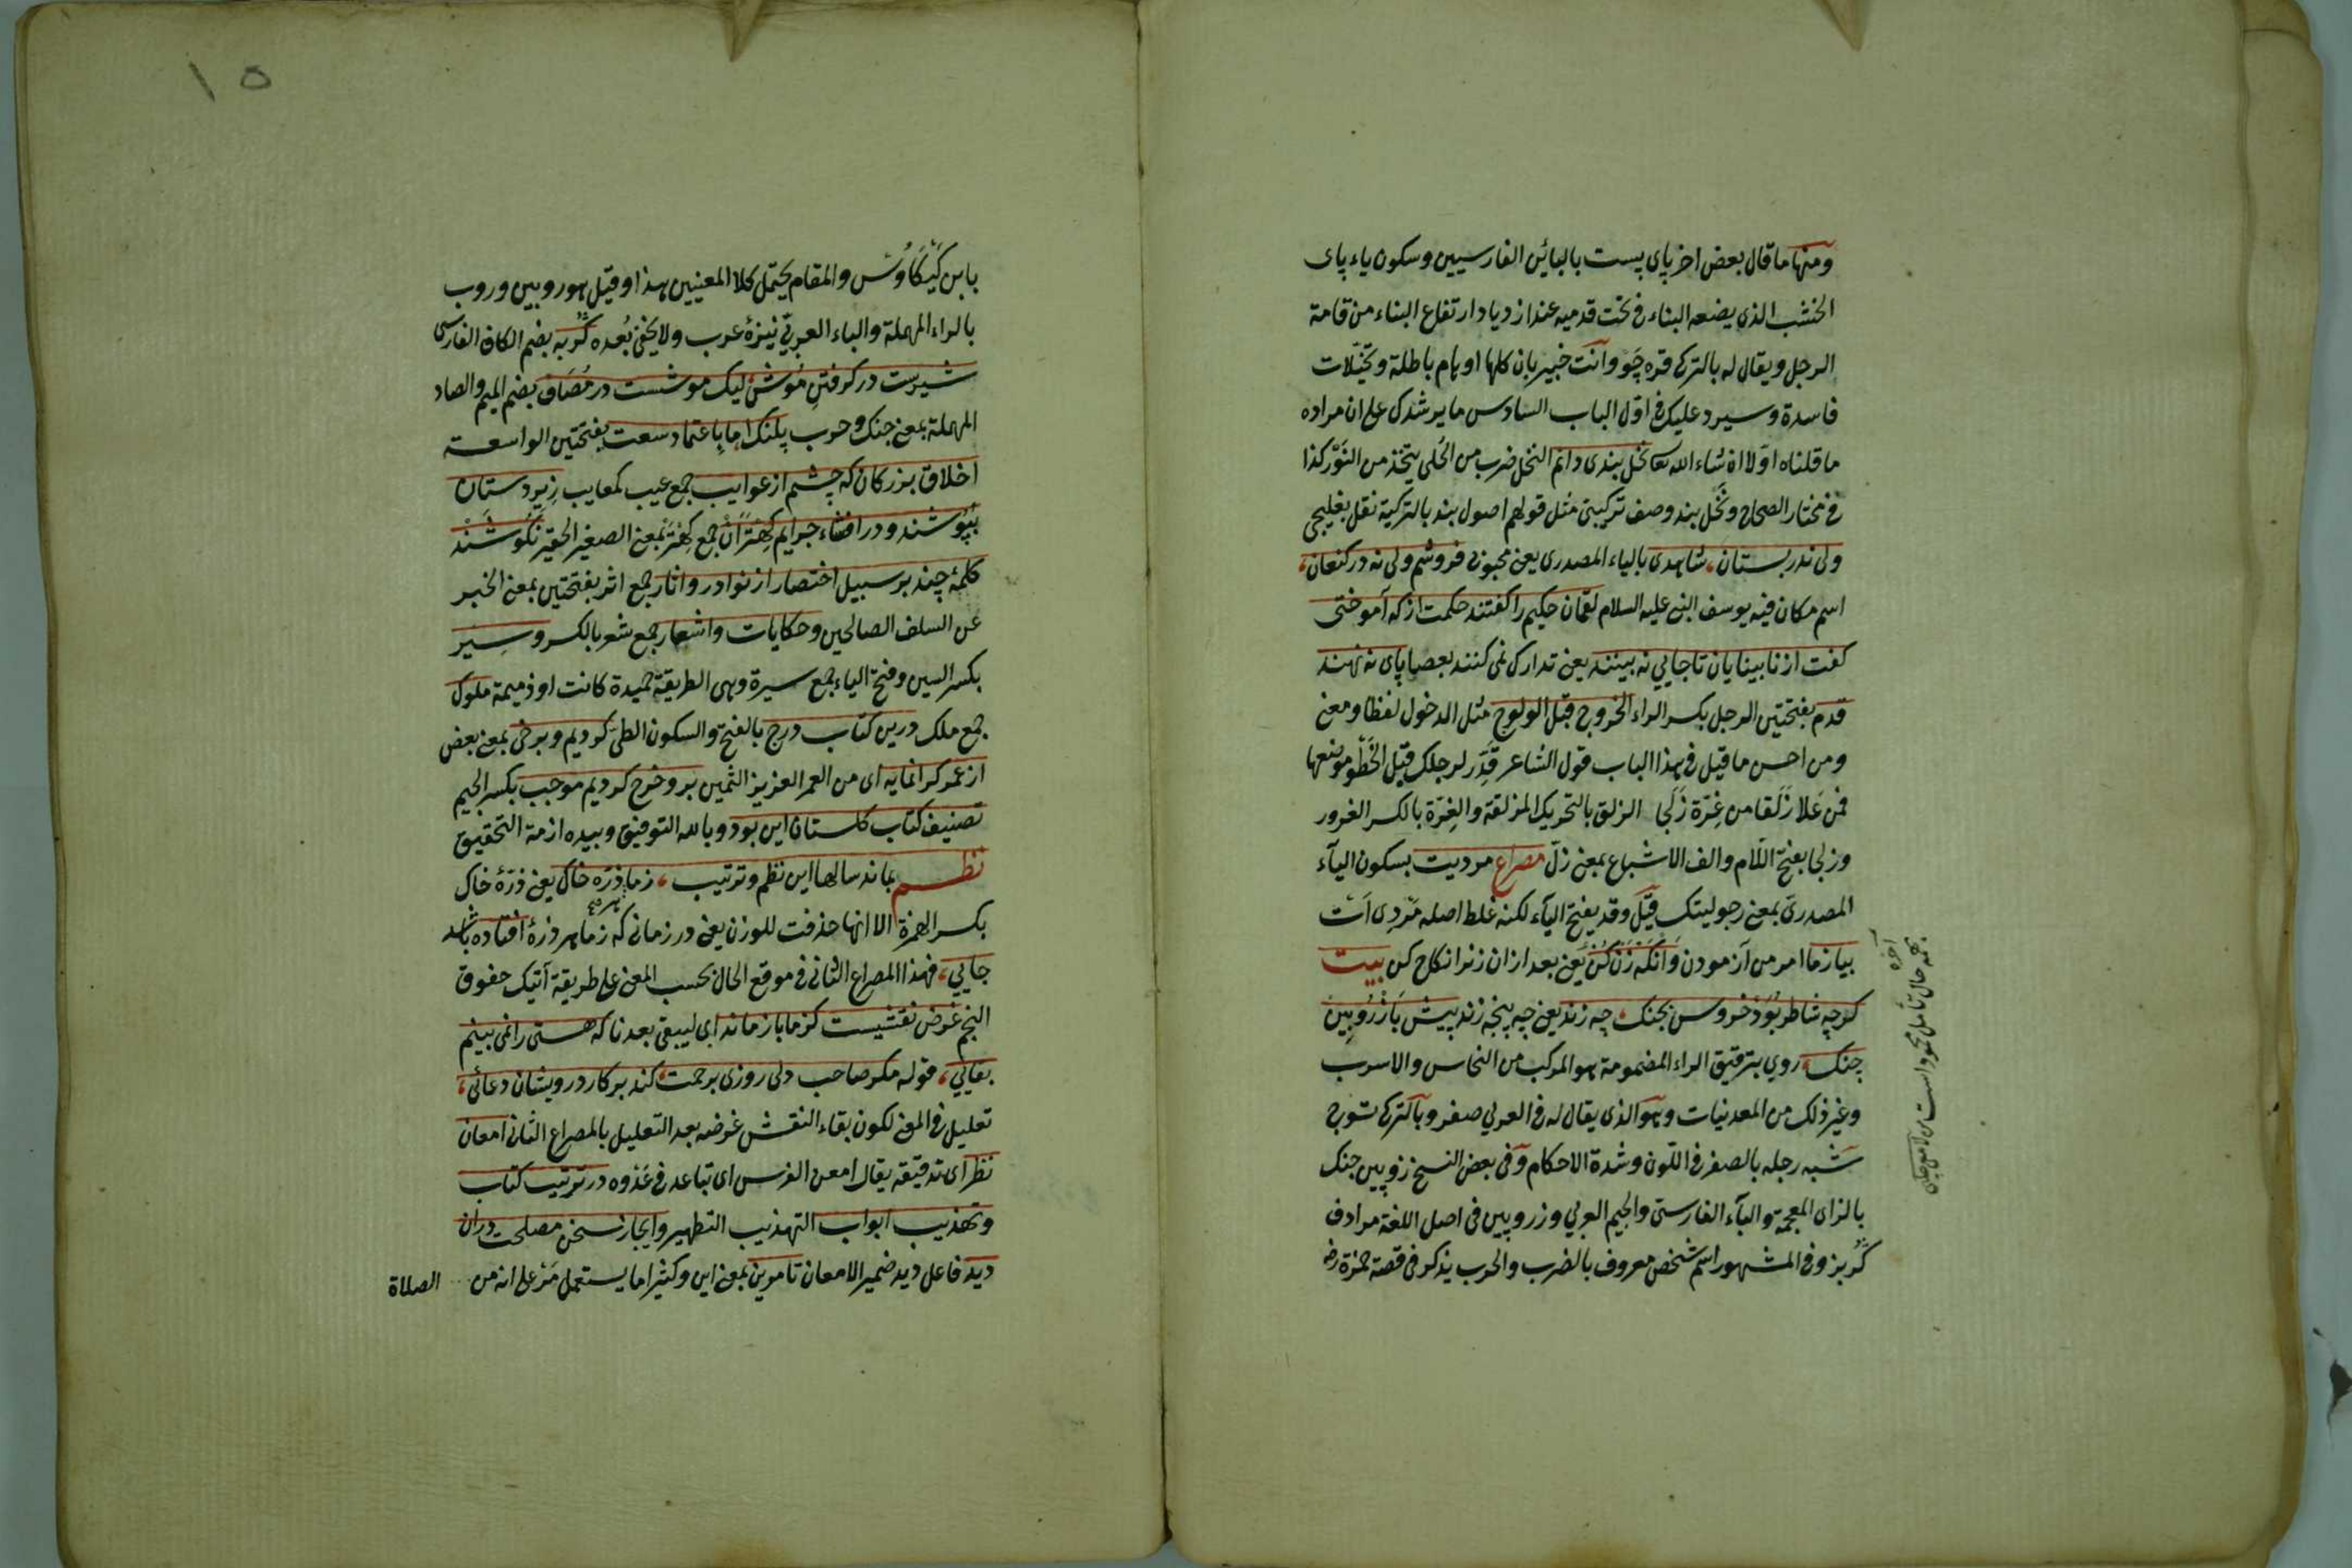 ومنها ما قال بعض اخر پاى پست بالبائين الفارسيين وسكون ياء پاى
الخشب الذى يضعه البناء فى تحت قدميه عند ازدياد ارتفاع البناء من قامة
الرجل ويقال له بالتركى قره چو وانت خبير بان كلها اوهام باطلة وتخيّلات
فاسدة وسيرد عليك فى اوّل الباب السادس ما يرشدك على ان مراده
ما قلناه اوّلا ان شاء الله تعا نخل بندى دانم النخل ضرب من الحلى يتخذ من النَوْر كذا
فى مختار الصحاح ونخل بند وصف تركيبى مثل قولهم اصول بند بالتركية نقل بغليجى
ولى نه در بستان، شاهدى بالياء المصدرى يعنى محبوبى فروشم ولى نه در كنعان،
اسم مكان فيه يوسف النبى عليه السلام لقمان حكيم را گفتند حكمت از كه آموختى
گفت از نابينايان تا جايى نه بينند يعنى تدارك نمى كنند بعصا پاى نه نهند
قدم بفتحتين الرجل بكسر الراء الخروج قبل الولوج مثل الدخول لفظا ومعنى
ومن احسن ما قيل فى هذا الباب قول الشاعر قَدِّر لرجلك قبل الخَطْو موضعها
فمن عَلا زَلَقا من غِرّة زَلَجا الزلق بالتحريك المزلقة والغِرّة بالكسر الغرور
وزلجا بفتح اللّام والف الاشباع بمعنى زلّ مصراع مرديت بسكون الياء
المصدرىّ بمعنى رجوليتك قيل وقد يفتح الياء لكنه غلط اصله مَرْدى اَت
بيازما امر من آزمودن وَانگَه زَنْ كُنْ يعنى بعد ازان زنرا نكاح كن بيت
گرچه شاطر بُوَد خروس بجنك، چه زند يعنى چه پنجه زند پيش بازِ رُويين
چنك، روى بترقيق الراء المضمومة هو المركب من النحاس والاسرب
وغير ذلك من المعدنيات وهو الذى يقال له فى العربى صفر وبالتركى توج
شبه رجله بالصفر فى اللون وشدة الاحكام وفى بعض النسخ زوپين جنك
بالزاى المعجمة والباء الفارسىّ والجيم العربى وزروپين فى اصل اللغة مرادف
گربز وفى المشهور اسم شخص معروف بالضرب والحرب يذكر فى قصة حمزة رضه
بابن كَيْكَاوُسْ والمقام يحتمل كلا المعنيين هذا وقيل هو روبين وروب
بالراء المهملة والباء العربىّ نيزهٔ عرب ولا يخفى بُعده گربه بضم الكاف الفارسى
شيرست در گرفتنِ مُوش ليك موشست در مُصَاف بضم الميم والصاد
المهملة بمعنى جنك وحرب پلنك اما باعتماد سعت بفتحتين الواسعة
اخلاق بزركان كه چشم از عوايب جمع عيب كمعايب زيردستان
بپوشند ودر افشاء جرايم كِهتَرانْ جمع كِهتَر بمعنى الصغير الحقير نكوشند
كلمهٔ چند بر سبيل اختصار از نوادر واثار جمع اثر بفتحتين بمعنى الخبر
عن السلف الصالحين وحكايات واشعار جمع شعر بالكسر وسِيَر
بكسر السين وفتح الياء جمع سيرة وهى الطريقة حميدة كانت او ذميمة ملوك
جمع ملك درين كتاب درج بالفتح والسكون الطىّ كرديم وبرخى بمعنى بعض
از عمر گرانمايه اى من العمر العزيز الثمين برو خرج كرديم موجب بكسر الجيم
تصنيف كتاب گلستان اين بود وبالله التوفيق وبيده ازمة التحقيق
نظم بماند سالها اين نظم وترتيب، ز ما ذرّه خاك يعنى ذرّهٔ خاك
بكسر الهمزة الا انها حذفت للوزن يعنى در زمانى كه ز ما هر ذرهٔ افتاده باشد
جايى، فهذا المصراع الثانى فى موقع الحال بحسب المعنى على طريقة آتيك خفوق
النجم غرض نقشيست كز ما باز ماند اى ليبقى بعدنا كه هستى را نمى بينم
بقايى، قوله مگر صاحب دلى روزى برحمت، كند بر كار درويشان دعائى،
تعليل فى المعنى لكون بقاء النقش غرضه بعد التعليل بالمصراع الثانى امعان
نظر اى تدقيقه يقال امعن الفرس اى تباعد فى عَدْوه در ترتيب كتاب
وتهذيب ابواب التهذيب التطهير وايجاز سخن مصلحت دران
ديد فاعل ديد ضمير الامعان تا مرين بمعنى اين وكثيرا ما يستعمل مَرْ على انه من
الصلاة
١٥